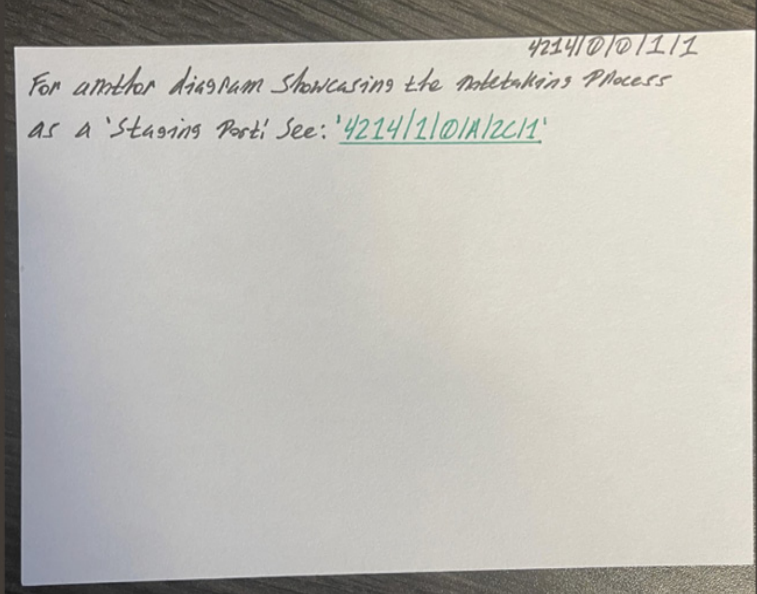 4214/0/0/1/1
For another diagram showcasing the notetaking process
as a 'Staging Port.' See: '4214/1/0/A/2C/1'